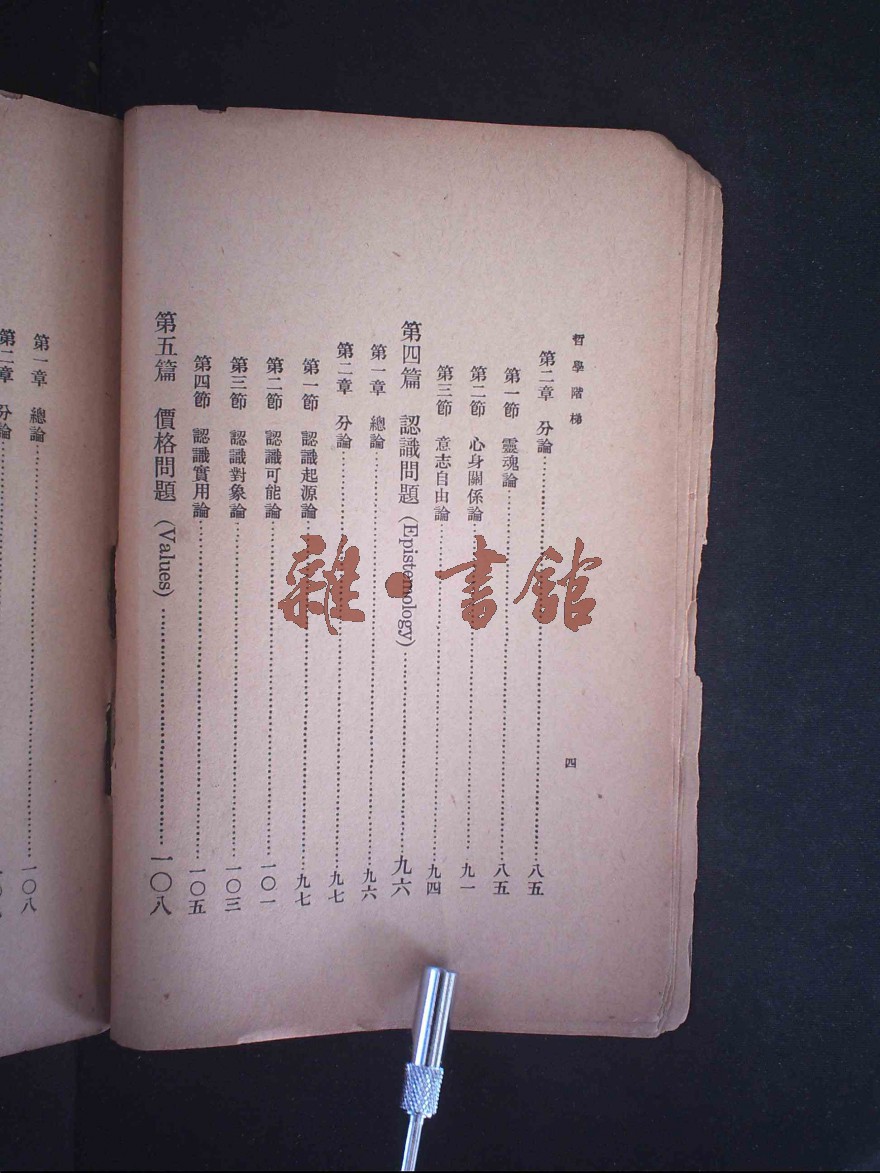 哲學階梯
四
第二章 分論……八五
第一節 靈魂論……八五
第二節 心身關係論……九一
第三節 意志自由論……九四
第四篇 認識問題 (Epistemology)……九六
第一章 總論……九六
第二章 分論……九七
第一節 認識起源論……九七
第二節 認識可能論……一〇一
第三節 認識對象論……一〇三
第四節 認識實用論……一〇五
第五篇 價格問題 (Values)……一〇八
第一章 總論……一〇八
第二章 分論……
雜·書館